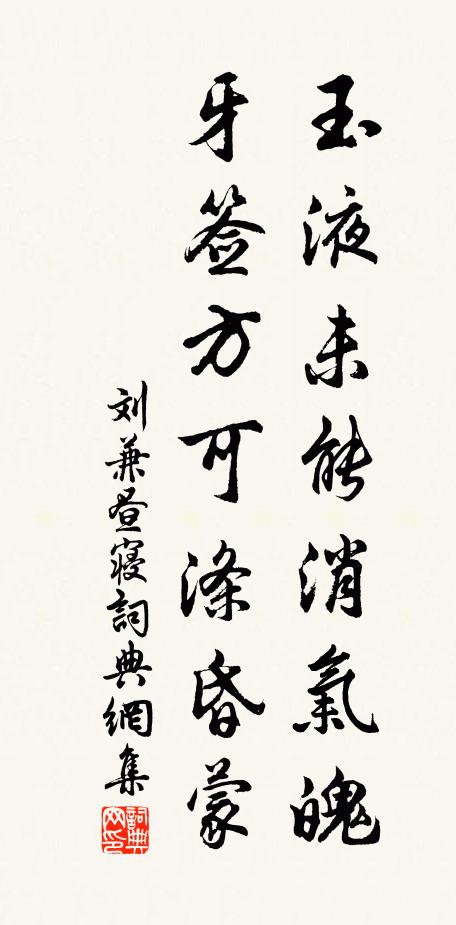 玉液未能消氣魄
牙签方可涤昏蒙
刘兼昼寝詞典網集
詞典网印